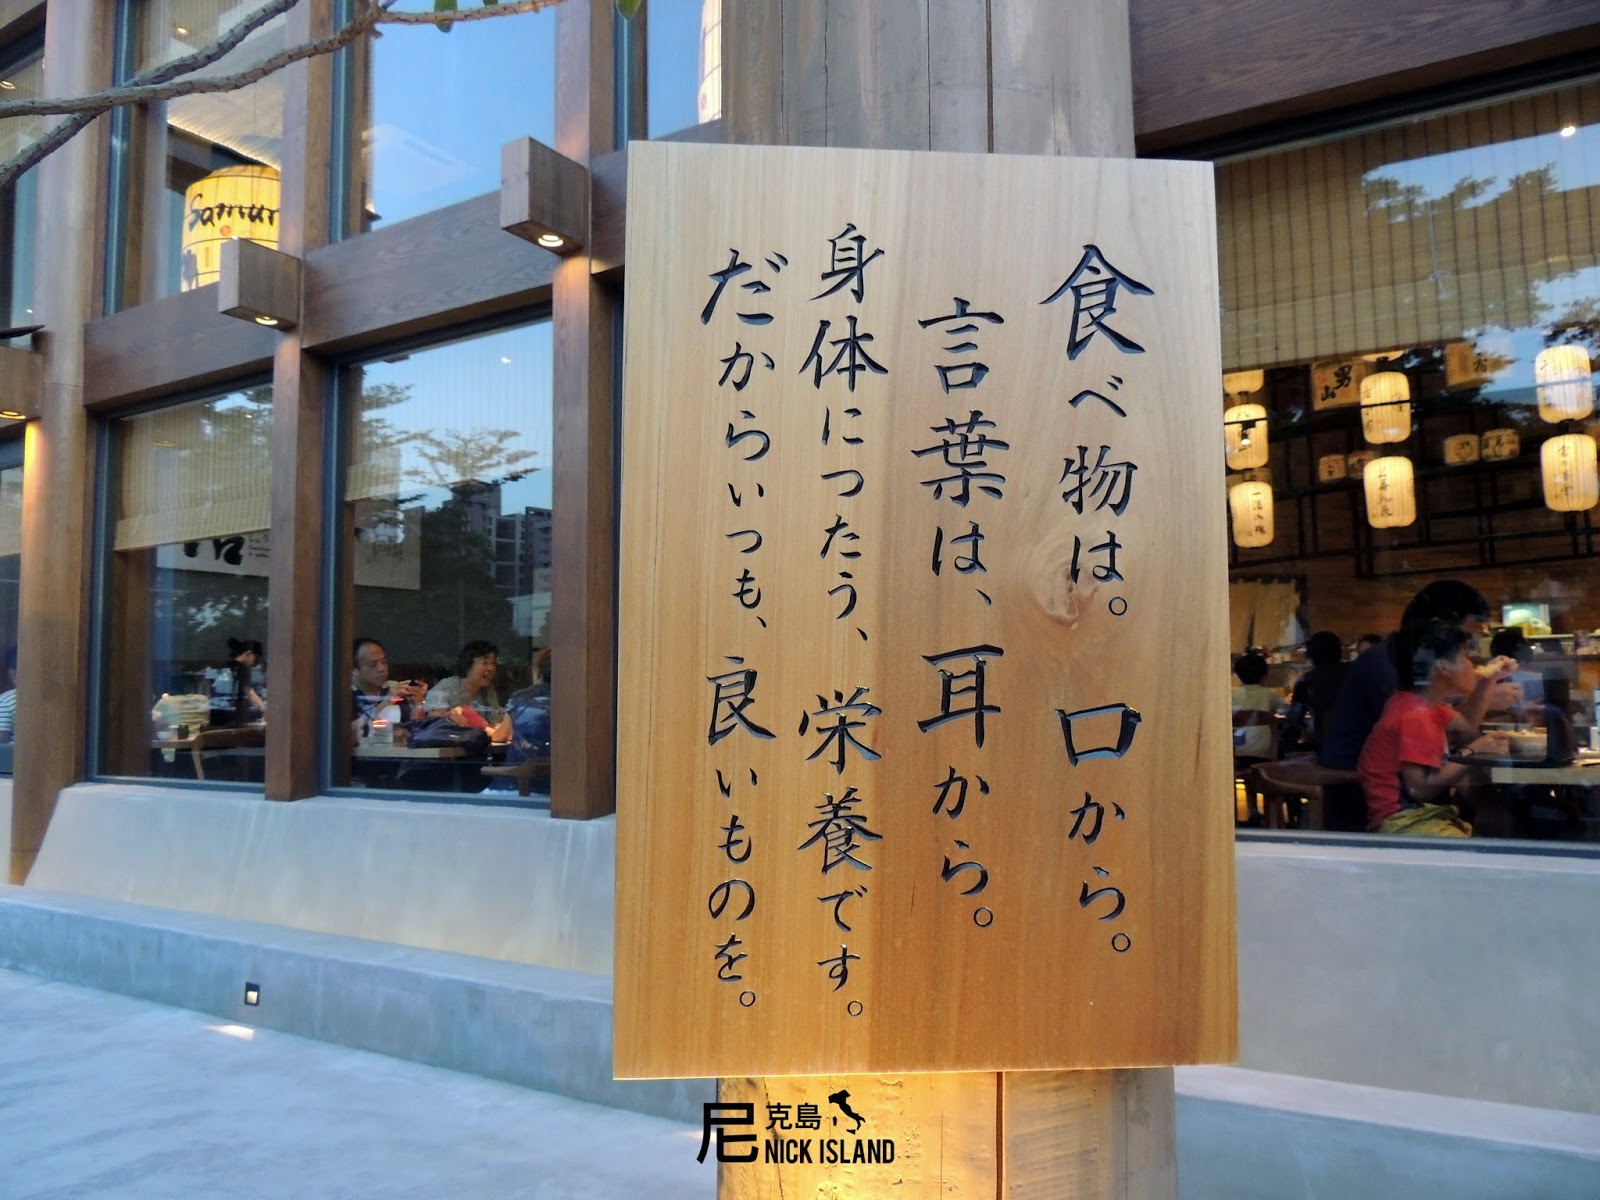 食べ物は。口から。
言葉は、耳から。
身体につたう、栄養です。
だからいつも、良いものを。
Samur
男山
尼克島
NICK ISLAND